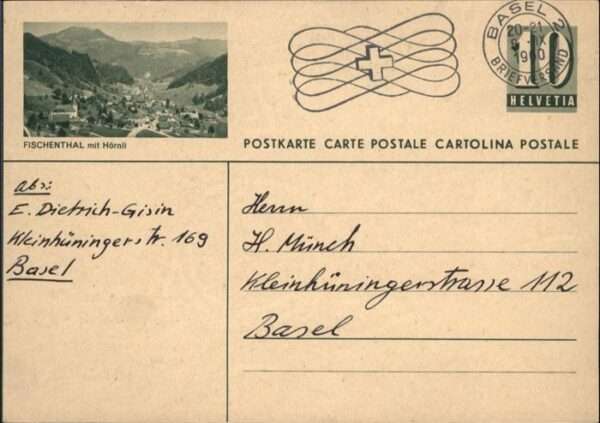 BASEL 2
20-21
IX
1960
BRIEFVERSAND
10
HELVETIA
FISCHENTHAL mit Hörnli
POSTKARTE CARTE POSTALE CARTOLINA POSTALE
Abs:
E. Dietrich-Gisin
Kleinhüningerstr. 169
Basel
Herrn
H. Münch
Kleinhüningerstrasse 112
Basel